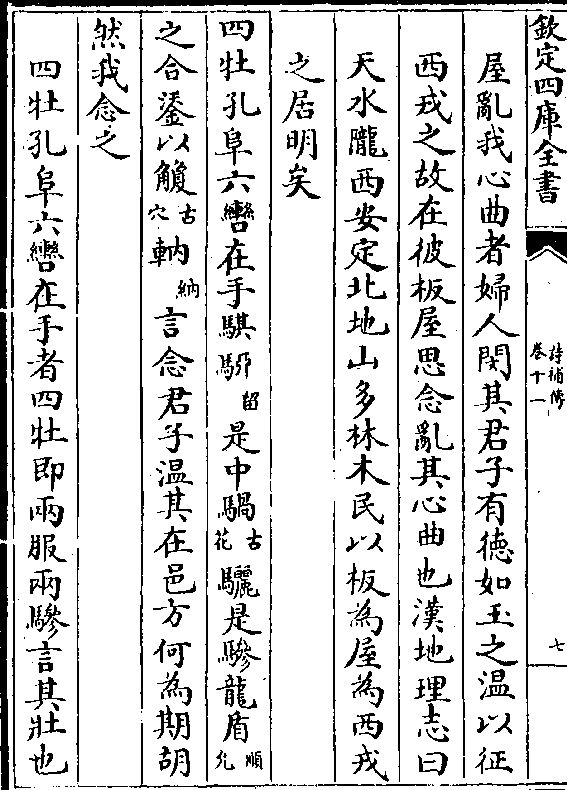 欽定四庫全書
詩補傳
卷十一
七
屋亂我心曲者婦人閔其君子有德如玉之溫以征
西戎之故在彼板屋思念亂其心曲也漢地理志曰
天水隴西安定北地山多林木民以板為屋為西戎
之居明矣
四牡孔阜六轡在手騏駵留是中騧古花驪是驂龍盾順允
之合鋈以觼古穴軜納言念君子溫其在邑方何為期胡
然我念之
四牡孔阜六轡在手者四牡即兩服兩驂言其壯也